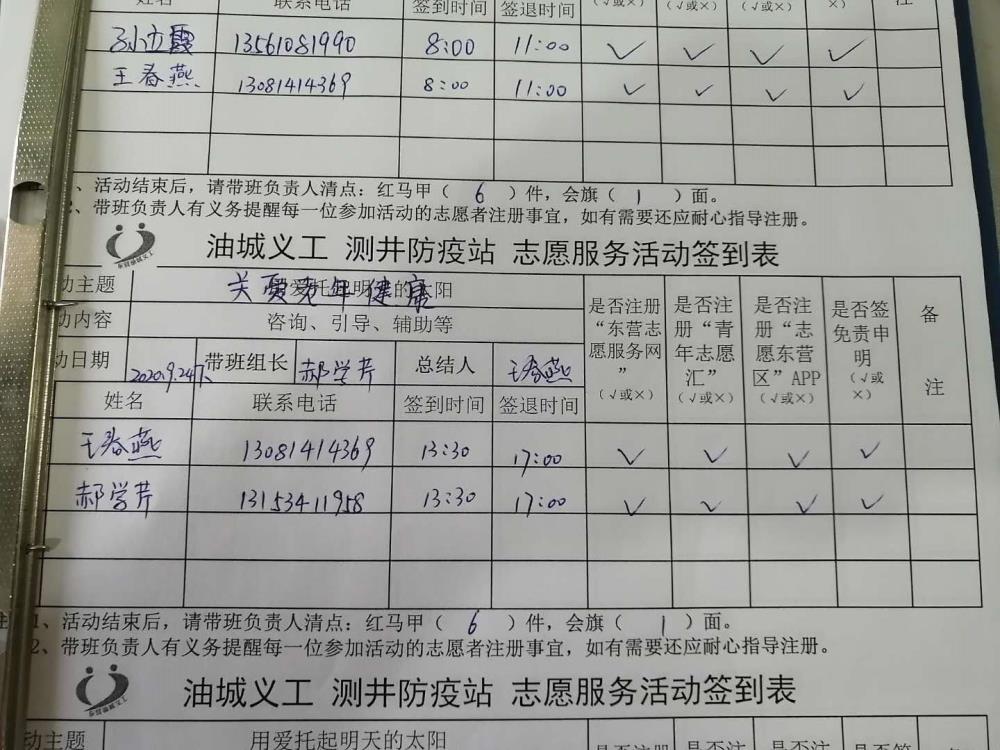 姓名 联系电话 签到时间 签退时间 (√或×) (√或×) (√或×) ×) 注
孙立霞 13561081990 8:00 11:00 √ √ √ √
王春燕 13081414369 8:00 11:00 √ √ √ √
、活动结束后，请带班负责人清点：红马甲（ 6 ）件，会旗（ 1 ）面。
2、带班负责人有义务提醒每一位参加活动的志愿者注册事宜，如有需要还应耐心指导注册。
油城义工 测井防疫站 志愿服务活动签到表
动主题 关爱老年健康 用爱托起明天的太阳
动内容 咨询、引导、辅助等
动日期 2020.9.24下 带班组长 郝学芹 总结人 王春燕
是否注册“东营志愿服务网”（√或×）
是否注册“青年志愿汇”（√或×）
是否注册“志愿东营区”APP（√或×）
是否签免责申明（√或×）
备注
姓名 联系电话 签到时间 签退时间
王春燕 13081414369 13:30 17:00 √ √ √ √
郝学芹 13153411958 13:30 17:00 √ √ √ √
注 1、活动结束后，请带班负责人清点：红马甲（ 6 ）件，会旗（ 1 ）面。
2、带班负责人有义务提醒每一位参加活动的志愿者注册事宜，如有需要还应耐心指导注册。
油城义工 测井防疫站 志愿服务活动签到表
动主题 用爱托起明天的太阳 是否注册 是否注 是否注 是否签